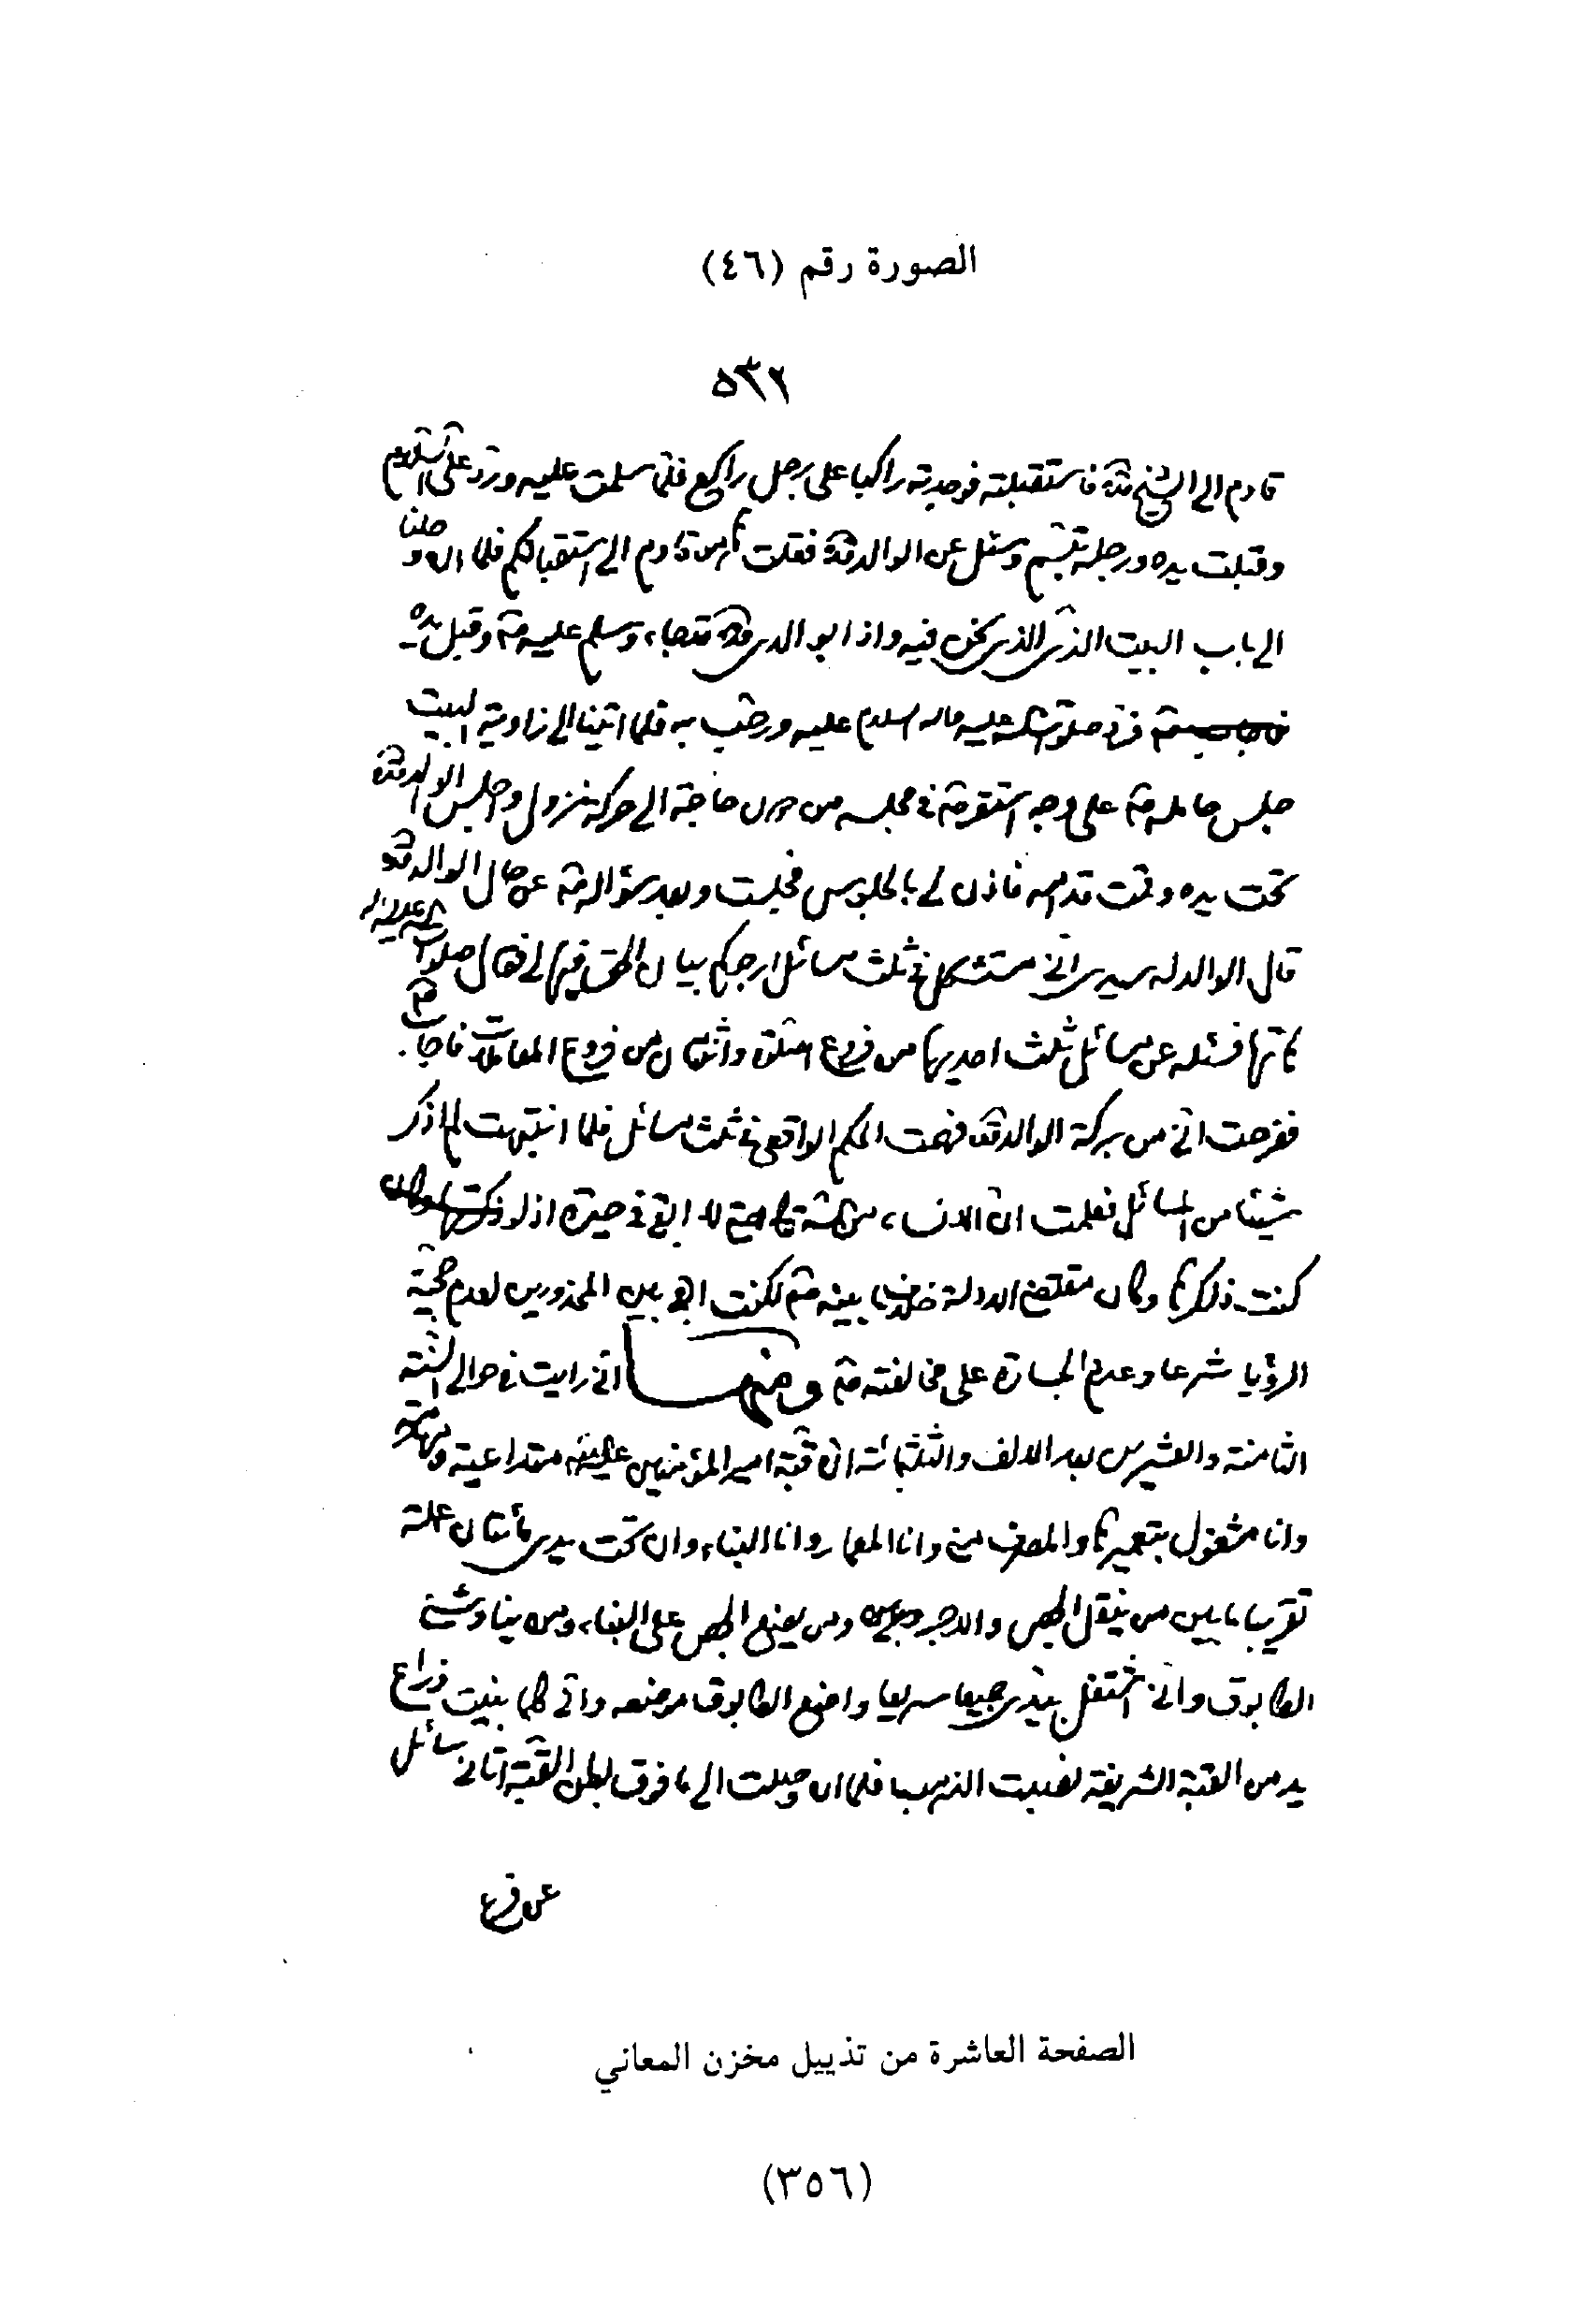 الصورة رقم (٤٦)
٥٣٢
قادم الى الشيخ قده فاستقبلته فوجدته راكبا على رجل راكع فلما سلمت عليه ورد علي السلام
وقبلت يده ورجله تبسم وسئل عن الوالد قده فقلت قادم الى استقبالكم فلما ان وصلنا
الى باب البيت الذي نحن فيه واذا بوالدي قده قد جاء وسلم عليه وقبل يده
فرد عليه السلام عليه ورحب به فلما اتينا الى زاوية البيت
جلس حامله على وجه استقر في مجلسه من دون حاجة الى حركة ونزول واجلس الوالد قده
تحت يده وقمت قدامه فاذن لي بالجلوس فجلست وبعد سؤاله عن حال الوالد قده
قال الوالد له سيدي اني مستشكل في ثلث مسائل ارجوكم بيان الحق فيها لي فقال
هاتها فسئله عن مسائل ثلث احديها من فروع الصلوة واثنتان من فروع المعاملات فاجاب
ففرحت اني من بركة الوالد قده فهمت الحكم الواقعي في ثلث مسائل فلما انتبهت لم اذكر
شيئا من المسائل فعلمت ان الانساء من حتى لا ابقى في حيرة اذ لو
كنت ذكرتها وكان مقتضى الادلة خلاف ما بينه لكنت ابقى بين المحذورين لعدم حجية
الرؤيا شرعا وعدم الجسارة على مخالفته ومنها اني رايت في حوالي السنة
الثامنة والعشرين بعد الالف والثلثمائة ان قبة امير المؤمنين متداعية
وانا مشغول بتعميرها والمصرف مني وانا المعمار وانا البناء وان تحت يدي مأتان عملة
تقريبا مابين من ينقل الجص والاجر ومن يضع الجص على البناء ومن يناوشني
الطابوق واني اشتغل بيدي جميعا سريعا واضع الطابوق موضعه واني كلما بنيت ذراع
يد من القبة الشريفة نصبت الذهب فلما ان وصلت الى ما فوق بطن القبة اتاني سائل
عن فرع
الصفحة العاشرة من تذييل مخزن المعاني
(٣٥٦)